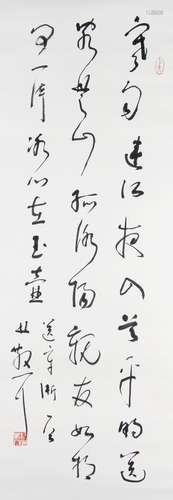 寒雨連江夜入吳平明送
客楚山孤洛陽親友如相
問一片冰心在玉壺
送辛漸
林散耳